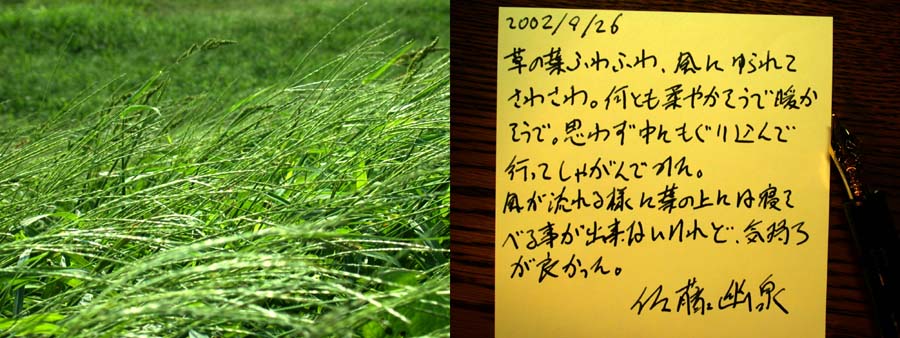 2002/9/26
草の葉ふわふわ、風にゆられて
さわさわ。何とも柔やかそうで暖か
そうで。思わず中にもぐり込んで
行ってしゃがんでみた。
風が流れる様に葉の上には寝て
べる事が出来ないけれど、気持ち
が良かった。
佐藤幽泉